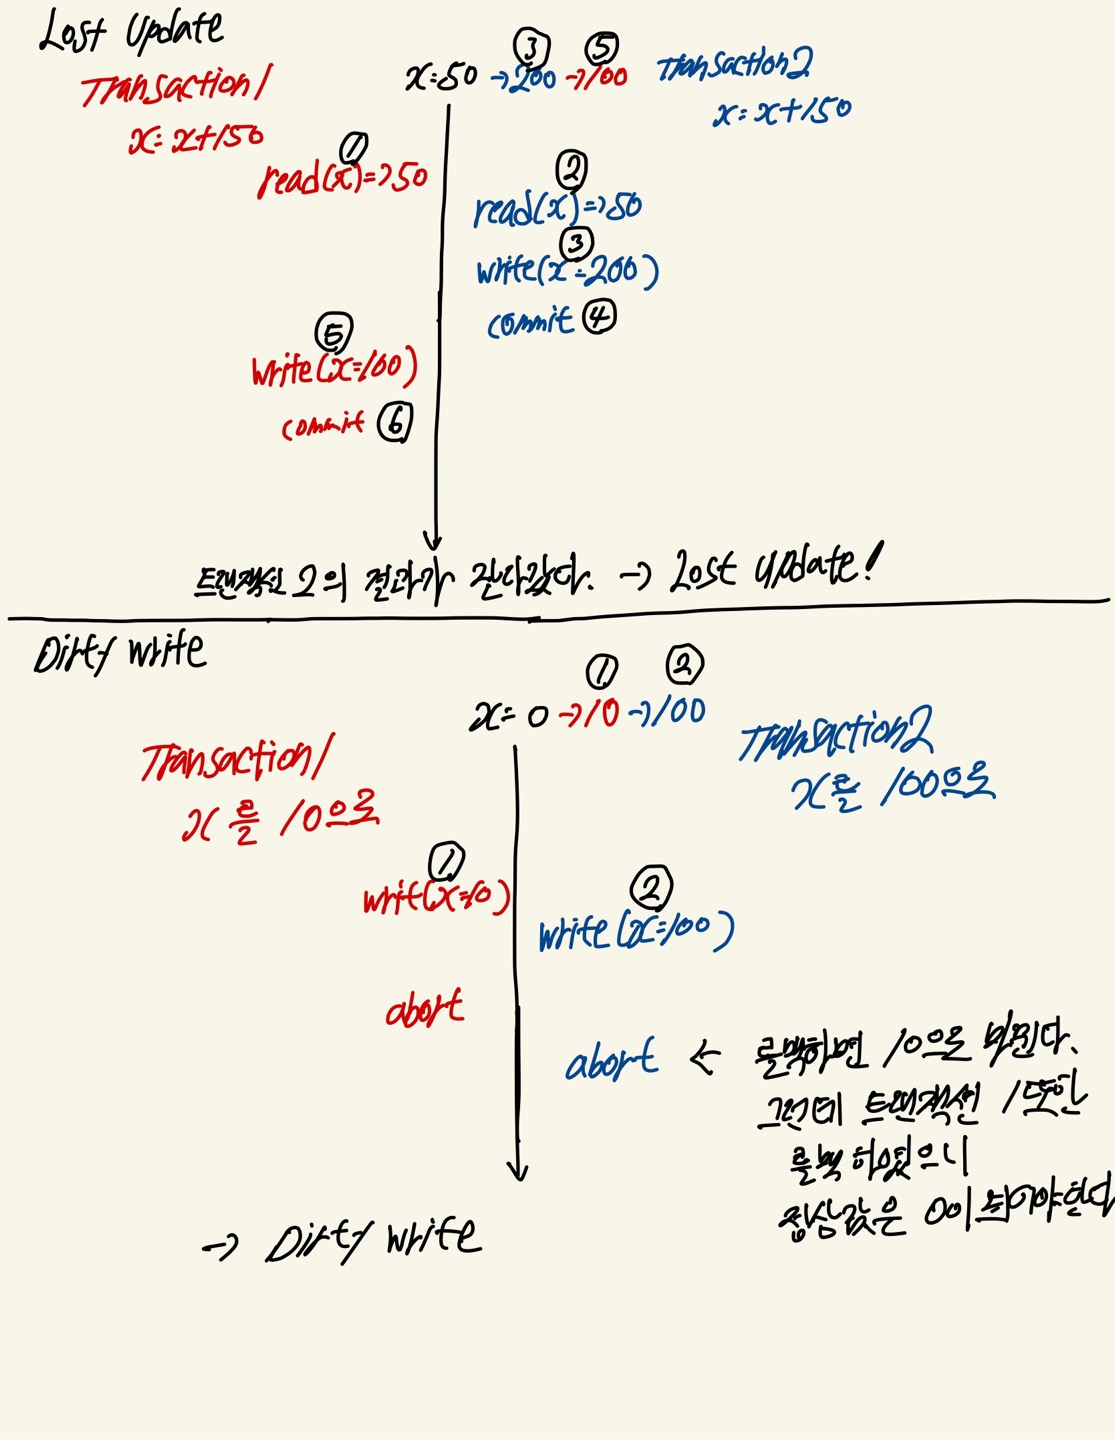 Lost Update
③ ⑤
x=50 →200 →100
Transaction1
x=x+150
Transaction2
x=x+150
①
read(x)=>50
②
read(x)=>50
③
write(x=200)
commit ④
⑤
write(x=100)
commit ⑥
트랜잭션 2의 결과가 날라갔다. → Lost update!
Dirty write
① ②
x=0 →10 →100
Transaction1
x를 10으로
Transaction2
x를 100으로
①
writ(x=10)
②
write(x=100)
abort
abort ← 롤백하면 10으로 바뀐다.
그런데 트랜잭션 1또한
롤백 하였으니
정상값은 0이 되어야한다
→ Dirty write